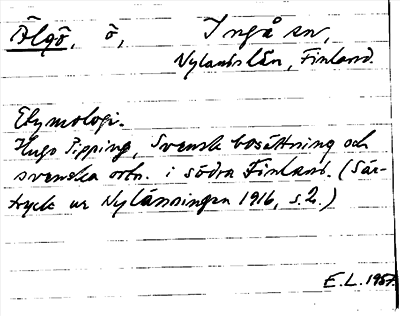 Älgö, ö, Ingå sn,
Nylands län, Finland.
Etymologi.
Hugo Pipping, Svensk bosättning och
svenska ortn. i södra Finland. (Sär-
tryck ur Nylänningen 1916, s.2.)
E.L. 1957.